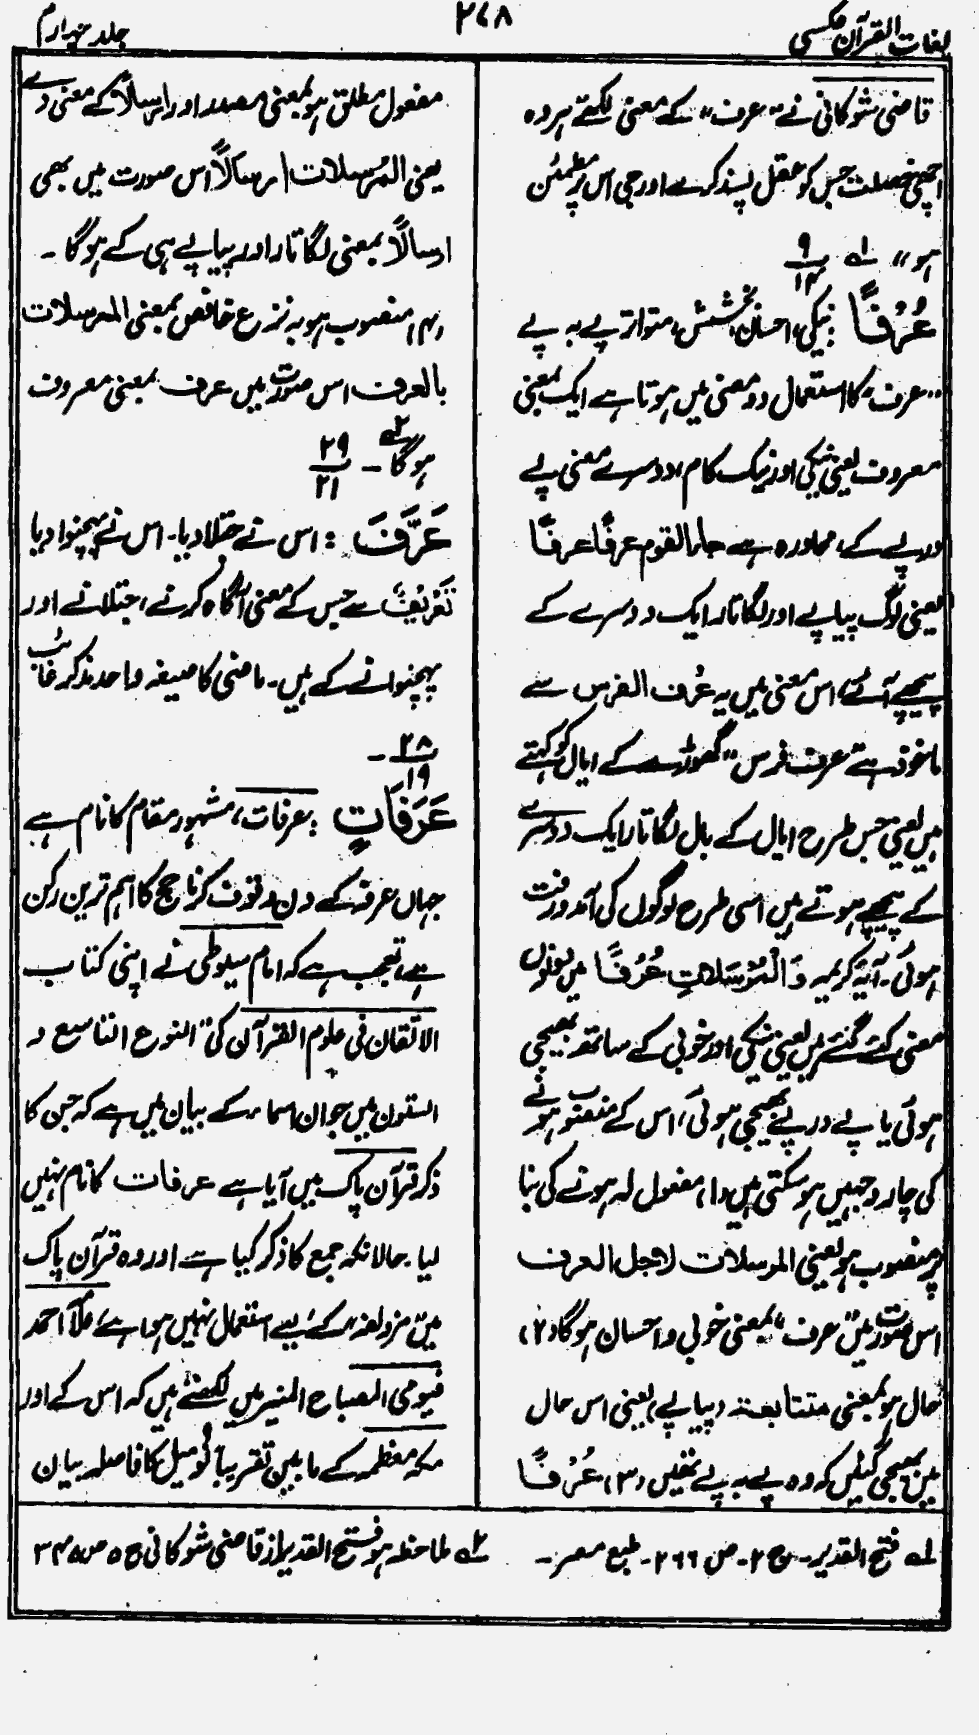 لغات القرآن عکسی
۲۷۸
جلد چہارم
قاضی شوکانی نے "عرف" کے معنی لکھے ہر وہ
اچھی خصلت جس کو عقل پسند کرے اور جی اس پر مطمئن
ہو" لے ۹/۱۴
عُرْفًا : نیکی، احسان، بخشش، متواتر پے بہ پے
"عرف" کا استعمال دو معنی میں ہوتا ہے ایک بمعنی
معروف یعنی نیکی اور نیک کام، دوسرے معنی پے
در پے کے، محاورہ ہے جاء القوم عرفًا عرفًا
یعنی لوگ پیاپے اور لگاتار ایک دوسرے کے
پیچھے آئے، اس معنی میں یہ عُرف الفرس سے
ماخوذ ہے عرف فرس "گھوڑے کے ایال کو کہتے
ہیں یعنی جس طرح ایال کے بال لگاتار ایک دوسرے
کے پیچھے ہوتے ہیں اسی طرح لوگوں کی آمد و رفت
ہوئی۔ آیۂ کریمہ وَالْمُرْسَلَاتِ عُرْفًا میں دونوں
معنی کئے گئے ہیں یعنی نیکی اور خوبی کے ساتھ بھیجی
ہوئی یا پے در پے بھیجی ہوئی، اس کے منصوب ہونے
کی چار وجہیں ہو سکتی ہیں (۱) مفعول لہ ہونے کی بنا
پر منصوب ہو یعنی المرسلات لاجل العرف
اس صورت میں عرف، بمعنی خوبی و احسان ہوگا (۲)
حال ہو بمعنی متتابعۃ (پیاپے) یعنی اس حال
میں بھیجی گئیں کہ وہ پے بہ پے تھیں (۳) عُرْفًا
مفعول مطلق ہو بمعنی مصدر اور ارسالاً کے معنی دے
یعنی المُرسلات ارسالاً اس صورت میں بھی
ارسالًا بمعنی لگاتار اور پیاپے ہی کے ہوگا ۔
(۴) منصوب ہو بہ نزع خافض بمعنی المرسلات
بالعرف اس صورت میں عرف بمعنی معروف
ہوگا ۲ے ۔ ۲۹/۲۱
عَرَّفَ : اس نے جتلا دیا۔ اس نے پہچنوا دیا
تَعْرِيْف سے جس کے معنی آگاہ کرنے، جتلانے اور
پہچنوانے کے ہیں۔ ماضی کا صیغہ واحد مذکر غائب
۲۸/۱۹ ۔
عَرَفَاتٍ : عرفات، مشہور مقام کا نام ہے
جہاں عرفہ کے دن وقوف کرنا حج کا اہم ترین رکن
ہے، تعجب ہے کہ امام سیوطی نے اپنی کتاب
الاتقان فی علوم القرآن کی "النوع التاسع و
الستون میں جو ان اسماء کے بیان میں ہے کہ جن کا
ذکر قرآن پاک میں آیا ہے عرفات کا نام نہیں
لیا۔ حالانکہ جمع کا ذکر کیا ہے اور وہ قرآن پاک
میں مزدلفہ کے لیے استعمال نہیں ہوا ہے، ملّا احمد
فیومی المصباح المنیر میں لکھتے ہیں کہ اس کے اور
مکہ معظمہ کے مابین تقریباً نو میل کا فاصلہ بیان
لے فتح القدیر۔ ج ۲۔ ص ۲۶۶۔ طبع مصر ۔
۲ے ملاحظہ ہو فتح القدیر از قاضی شوکانی ج ۵ ص ۳۴۵